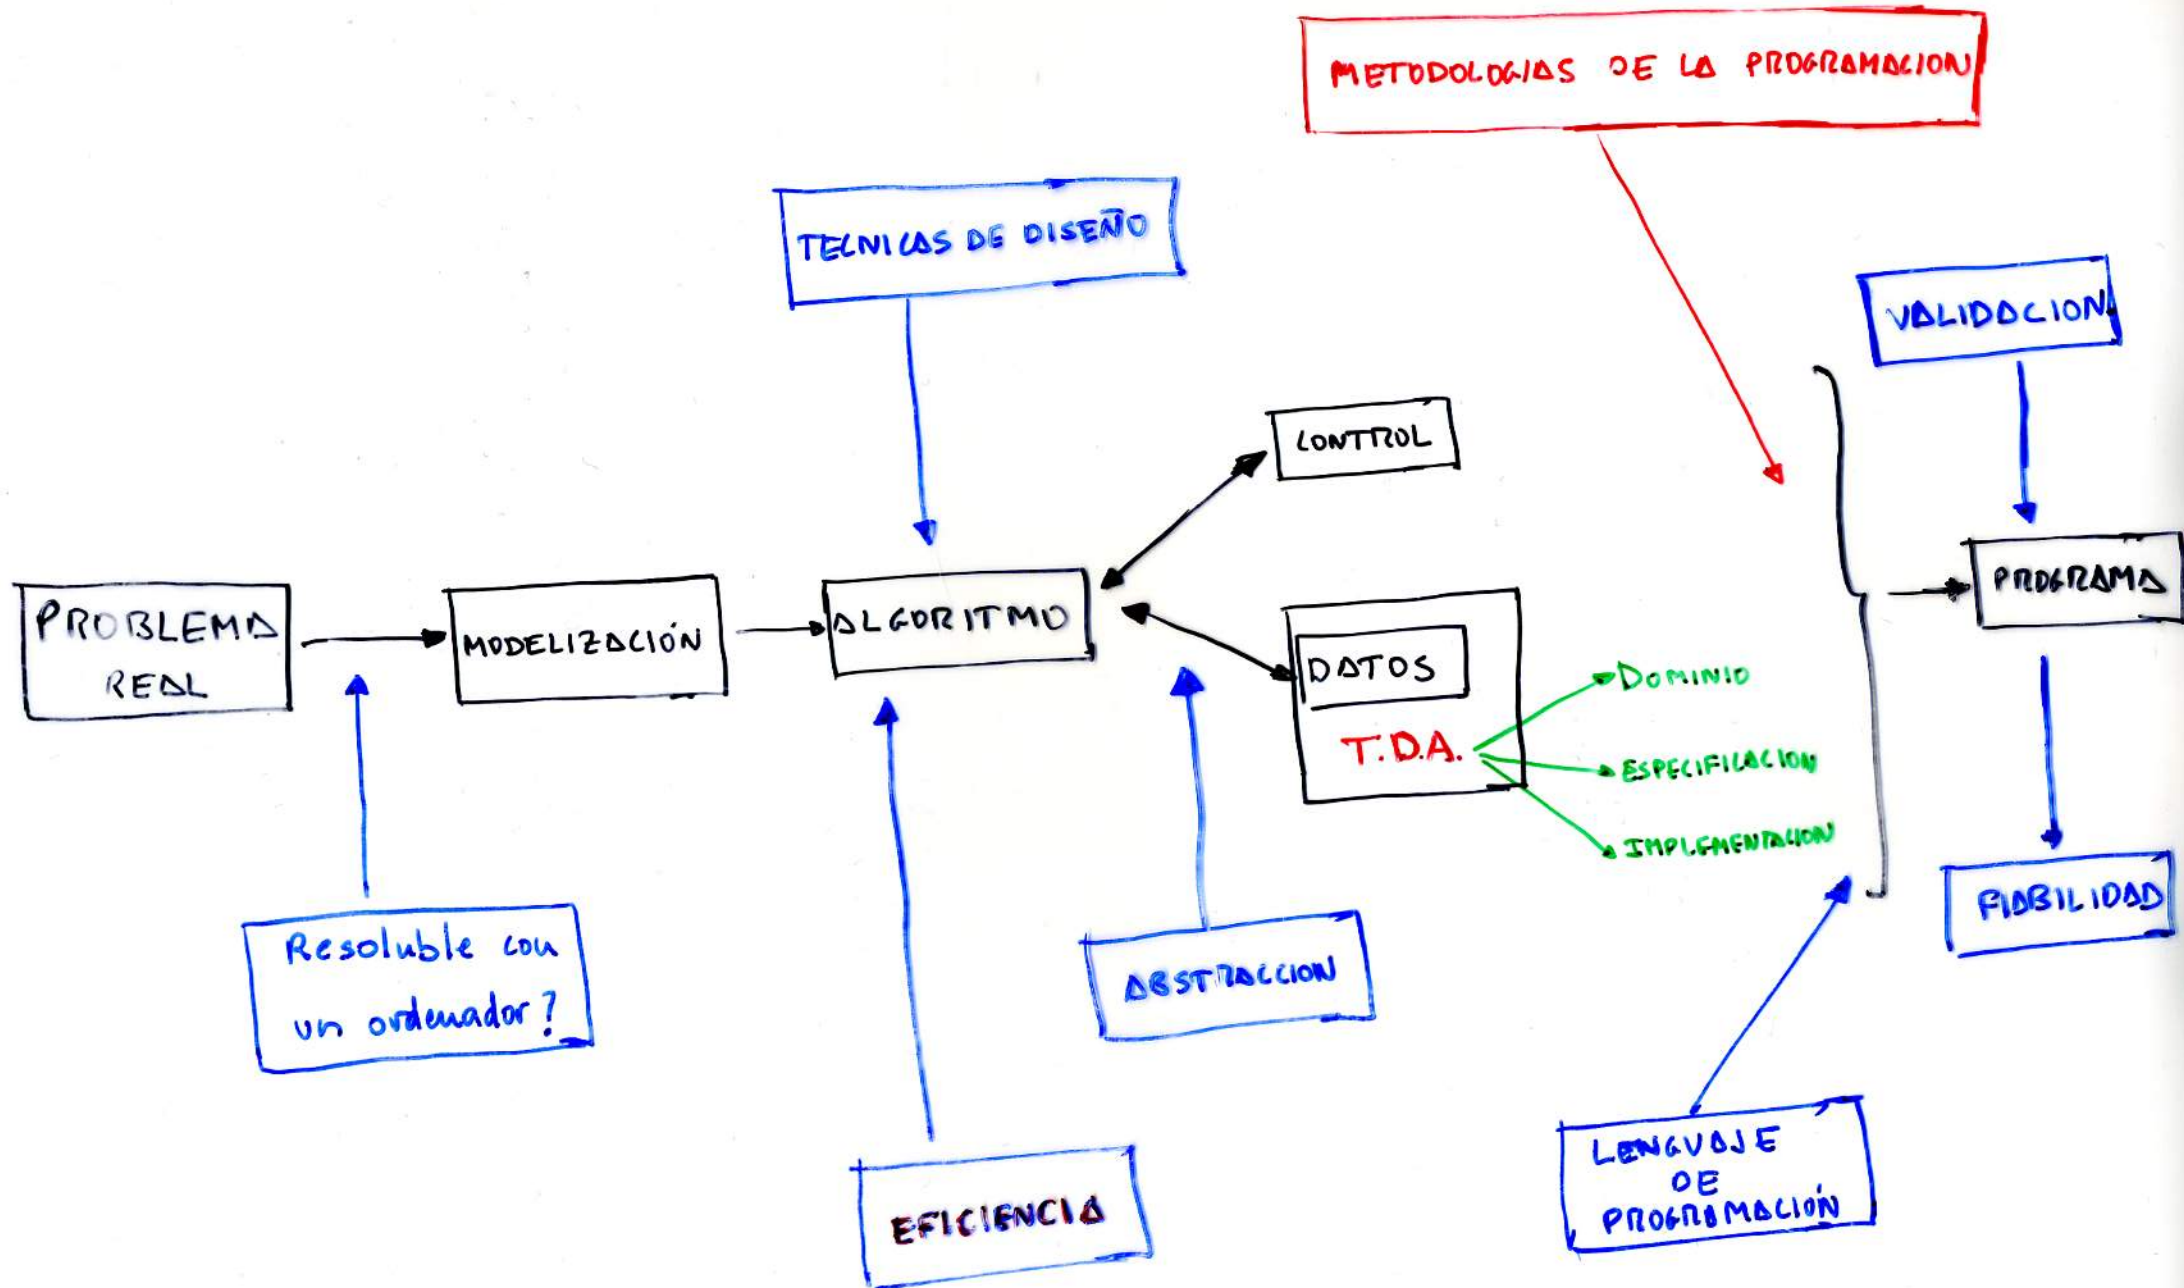 METODOLOGIAS DE LA PROGRAMACION
TECNICAS DE DISEÑO
VALIDACION
CONTROL
PROBLEMA
REAL
MODELIZACIÓN
ALGORITMO
DATOS
T.D.A.
DOMINIO
ESPECIFICACION
IMPLEMENTACION
PROGRAMA
FIABILIDAD
Resoluble con
un ordenador?
ABSTRACCION
EFICIENCIA
LENGUAJE
DE
PROGRAMACIÓN